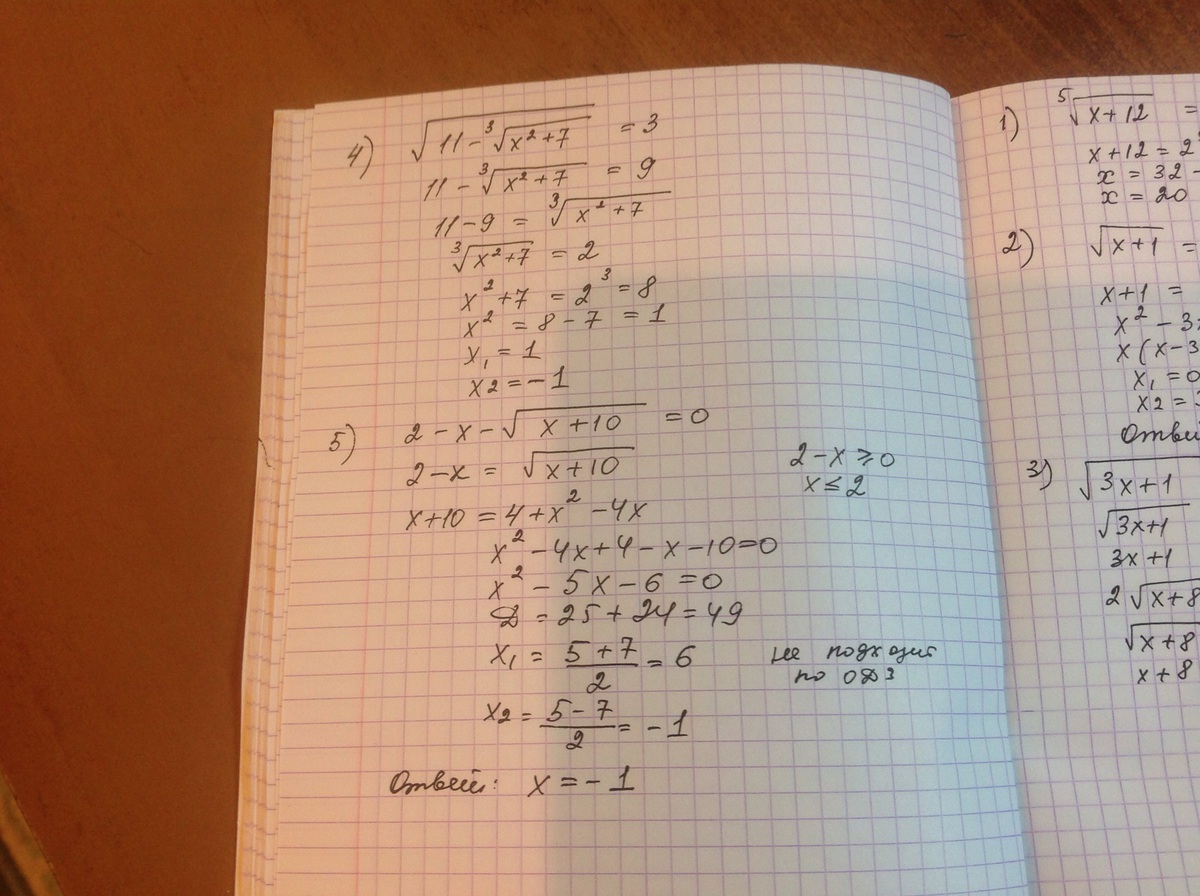 4) √(11-³√(x²+7)) = 3
11-³√(x²+7) = 9
11-9 = ³√(x²+7)
³√(x²+7) = 2
x²+7 = 2³ = 8
x² = 8-7 = 1
x₁ = 1
x₂ = -1
5) 2-x-√(x+10) = 0
2-x = √(x+10)
2-x ≥ 0
x ≤ 2
x+10 = 4+x²-4x
x²-4x+4-x-10=0
x²-5x-6=0
D = 25+24=49
x₁ = (5+7)/2 = 6
не подходит
по ОДЗ
x₂ = (5-7)/2 = -1
Ответ: x = -1
1) ⁵√(x+12) =
x+12 = 2
x = 32 -
x = 20
2) √(x+1) =
x+1 =
x² - 3x
x(x-3
x₁ = 0
x₂ =
3) √(3x+1)
√(3x+1)
3x+1
2√(x+8
√(x+8
x+8